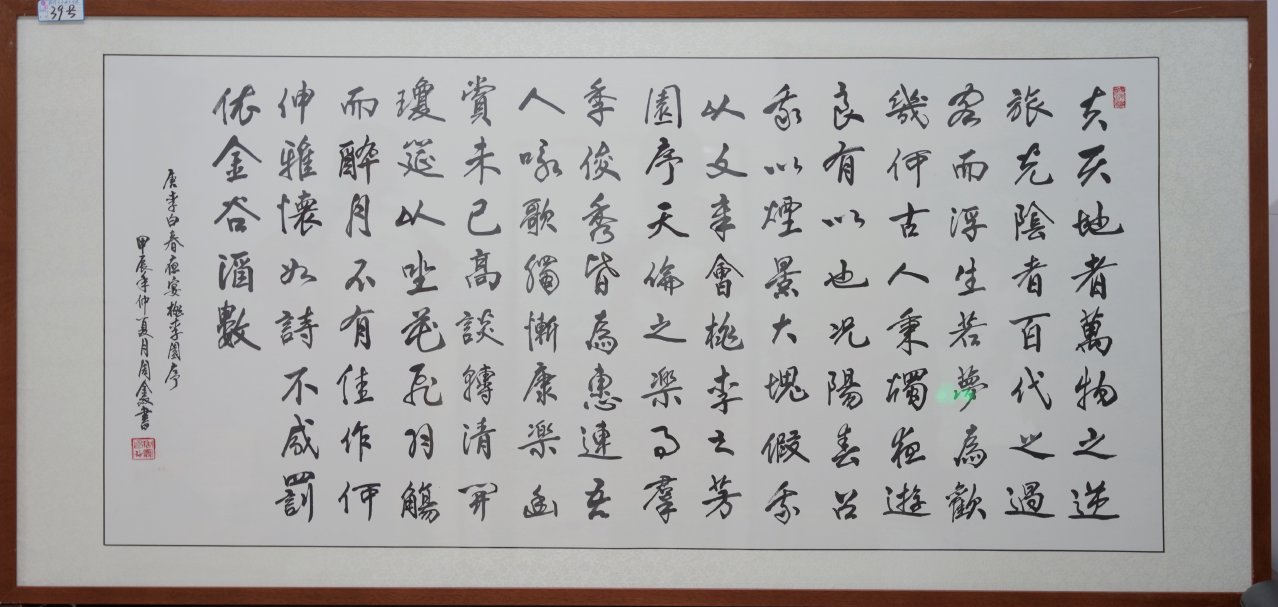 39号
夫天地者萬物之逆
旅光陰者百代之過
客而浮生若夢為歡
幾何古人秉燭夜遊
良有以也况陽春召
我以煙景大塊假我
以文章會桃李之芳
園序天倫之樂事羣
季俊秀皆為惠連吾
人咏歌獨慚康樂幽
賞未已高談轉清開
瓊筵以坐花飛羽觴
而醉月不有佳作何
伸雅懷如詩不成罰
依金谷酒數
唐李白春夜宴桃李園序
甲辰年仲夏月周書